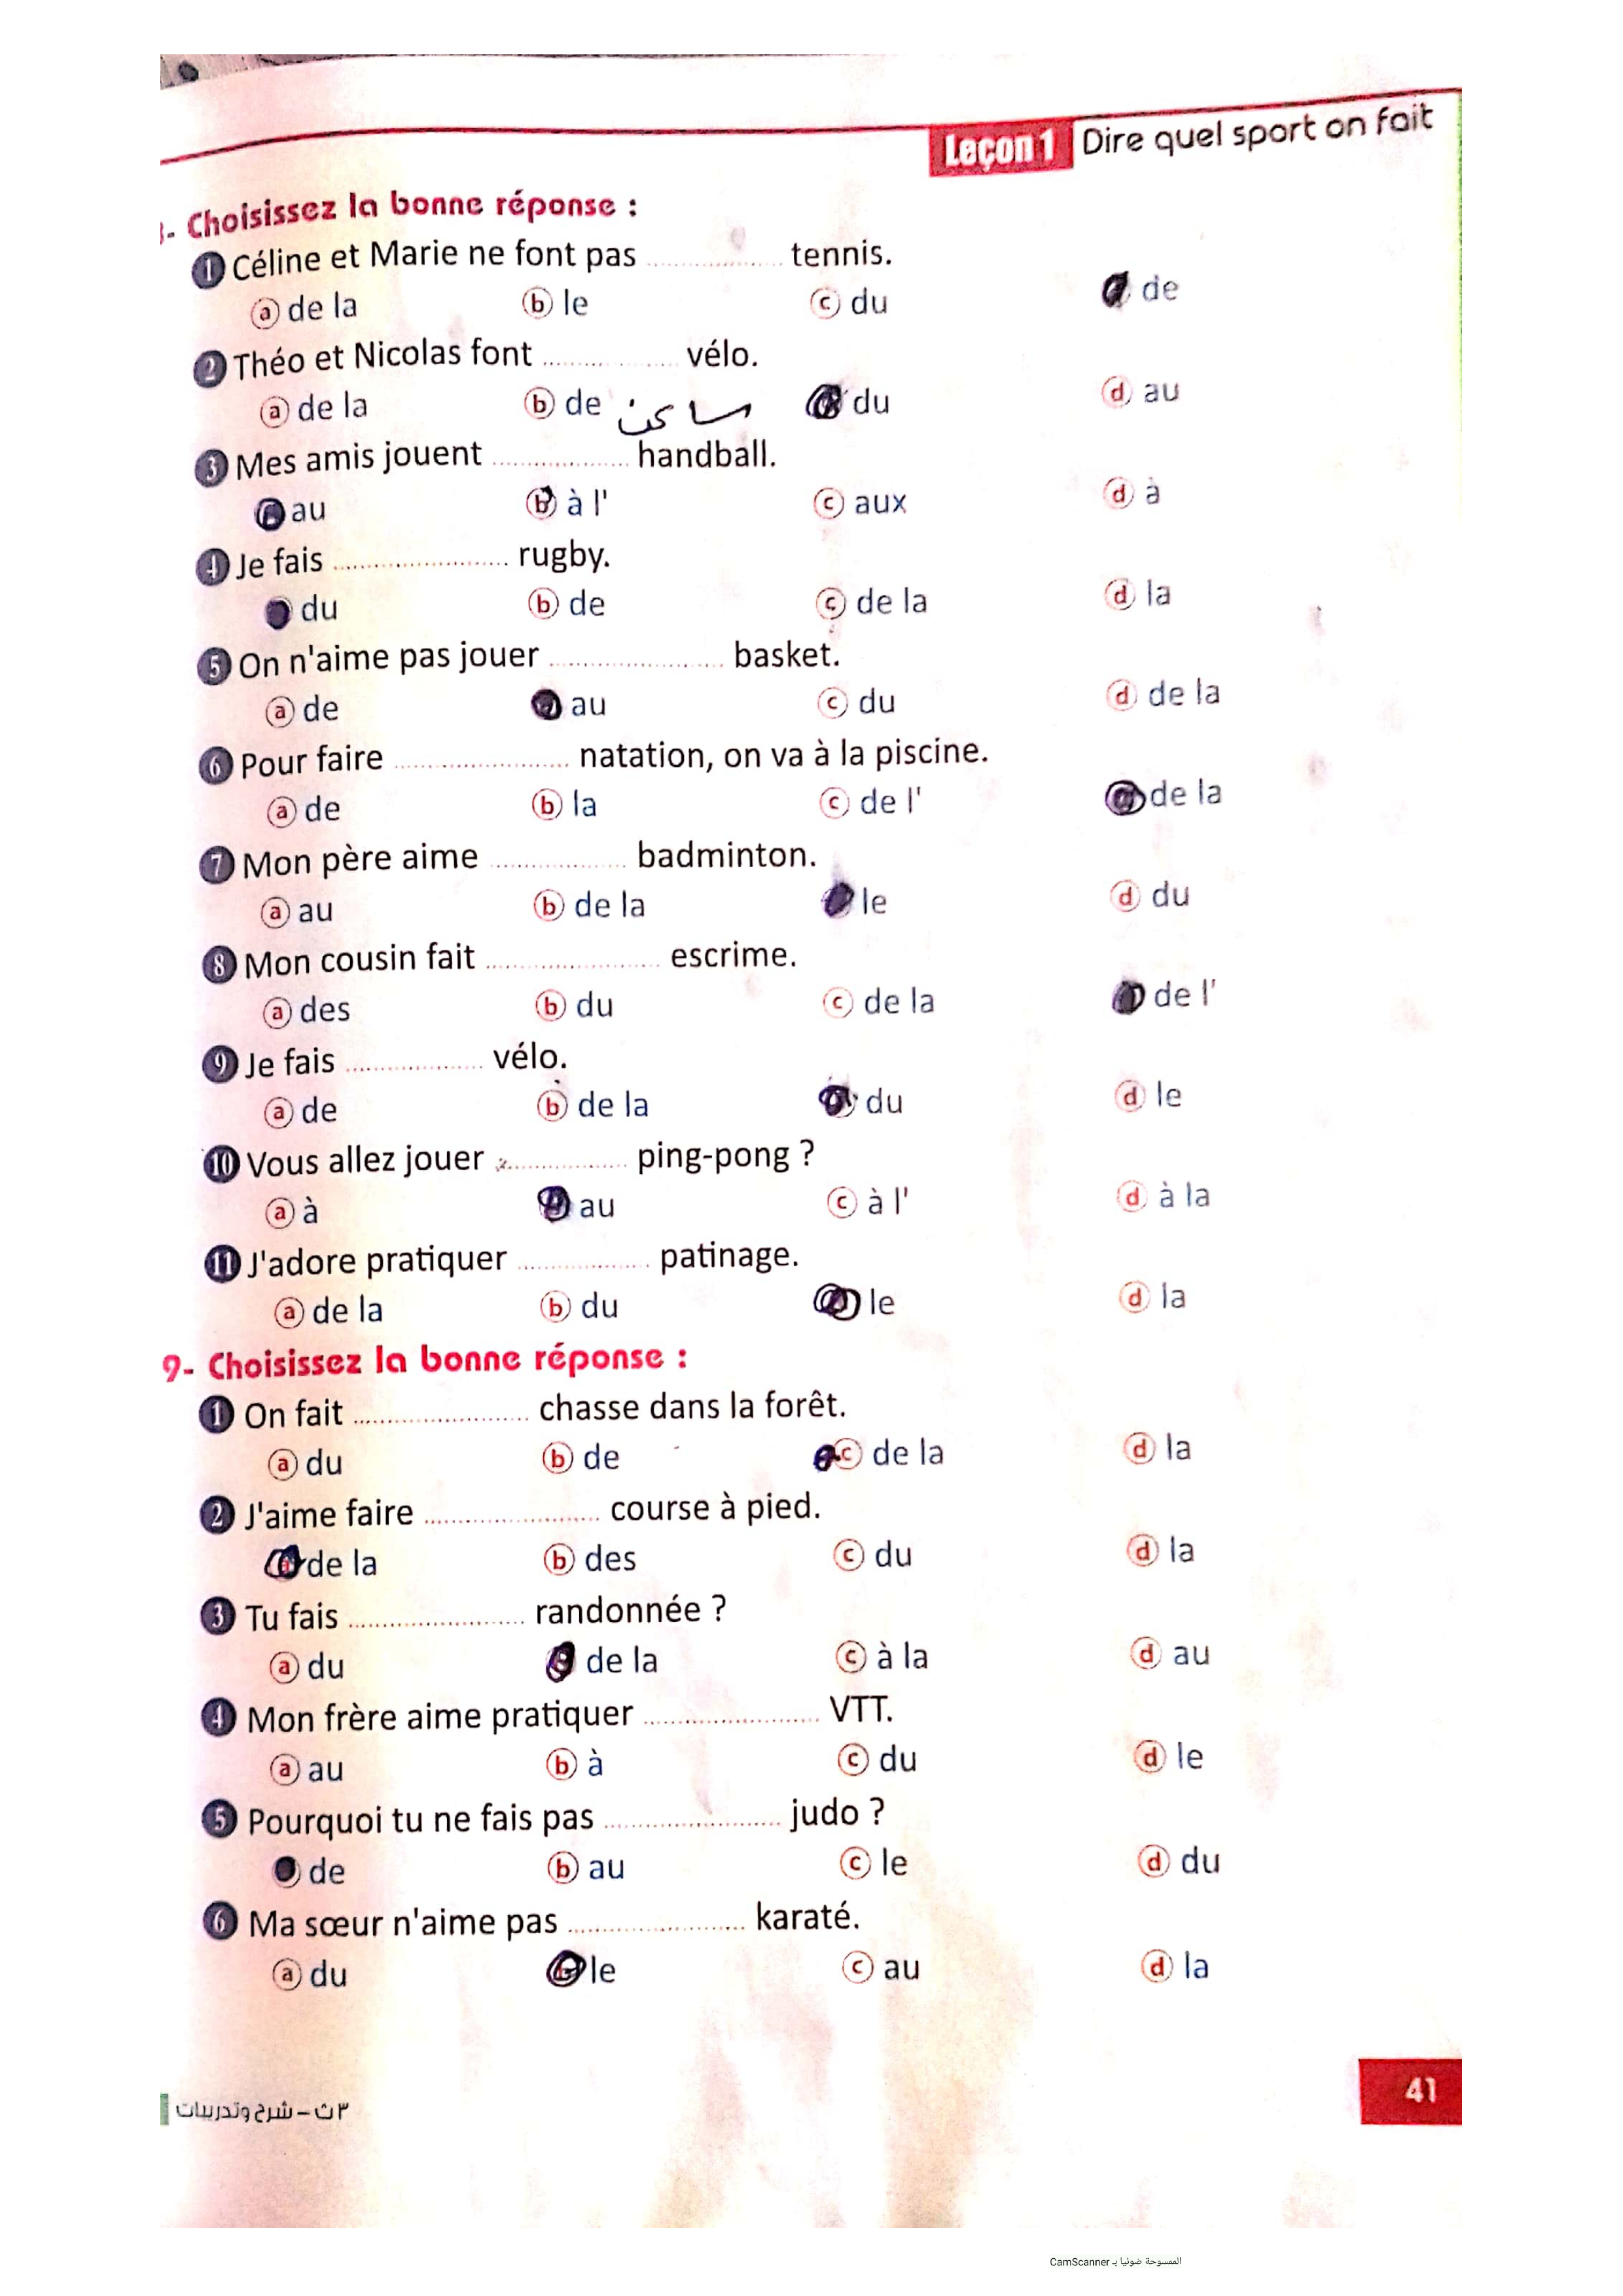 Leçon 1 Dire quel sport on fait
- Choisissez la bonne réponse :
1 Céline et Marie ne font pas .................. tennis.
a de la b le c du de
2 Théo et Nicolas font .................. vélo.
a de la b de ساكن du d au
3 Mes amis jouent .................. handball.
au b à l' c aux d à
4 Je fais .................. rugby.
du b de c de la d la
5 On n'aime pas jouer .................. basket.
a de au c du d de la
6 Pour faire .................. natation, on va à la piscine.
a de b la c de l' de la
7 Mon père aime .................. badminton.
a au b de la le d du
8 Mon cousin fait .................. escrime.
a des b du c de la de l'
9 Je fais .................. vélo.
a de b de la du d le
10 Vous allez jouer .................. ping-pong ?
a à au c à l' d à la
11 J'adore pratiquer .................. patinage.
a de la b du le d la
9- Choisissez la bonne réponse :
1 On fait .................. chasse dans la forêt.
a du b de c de la d la
2 J'aime faire .................. course à pied.
a de la b des c du d la
3 Tu fais .................. randonnée ?
a du de la c à la d au
4 Mon frère aime pratiquer .................. VTT.
a au b à c du d le
5 Pourquoi tu ne fais pas .................. judo ?
de b au c le d du
6 Ma sœur n'aime pas .................. karaté.
a du le c au d la
41
٣ث – شرح وتدريبات
الممسوحة ضوئيا بـ CamScanner